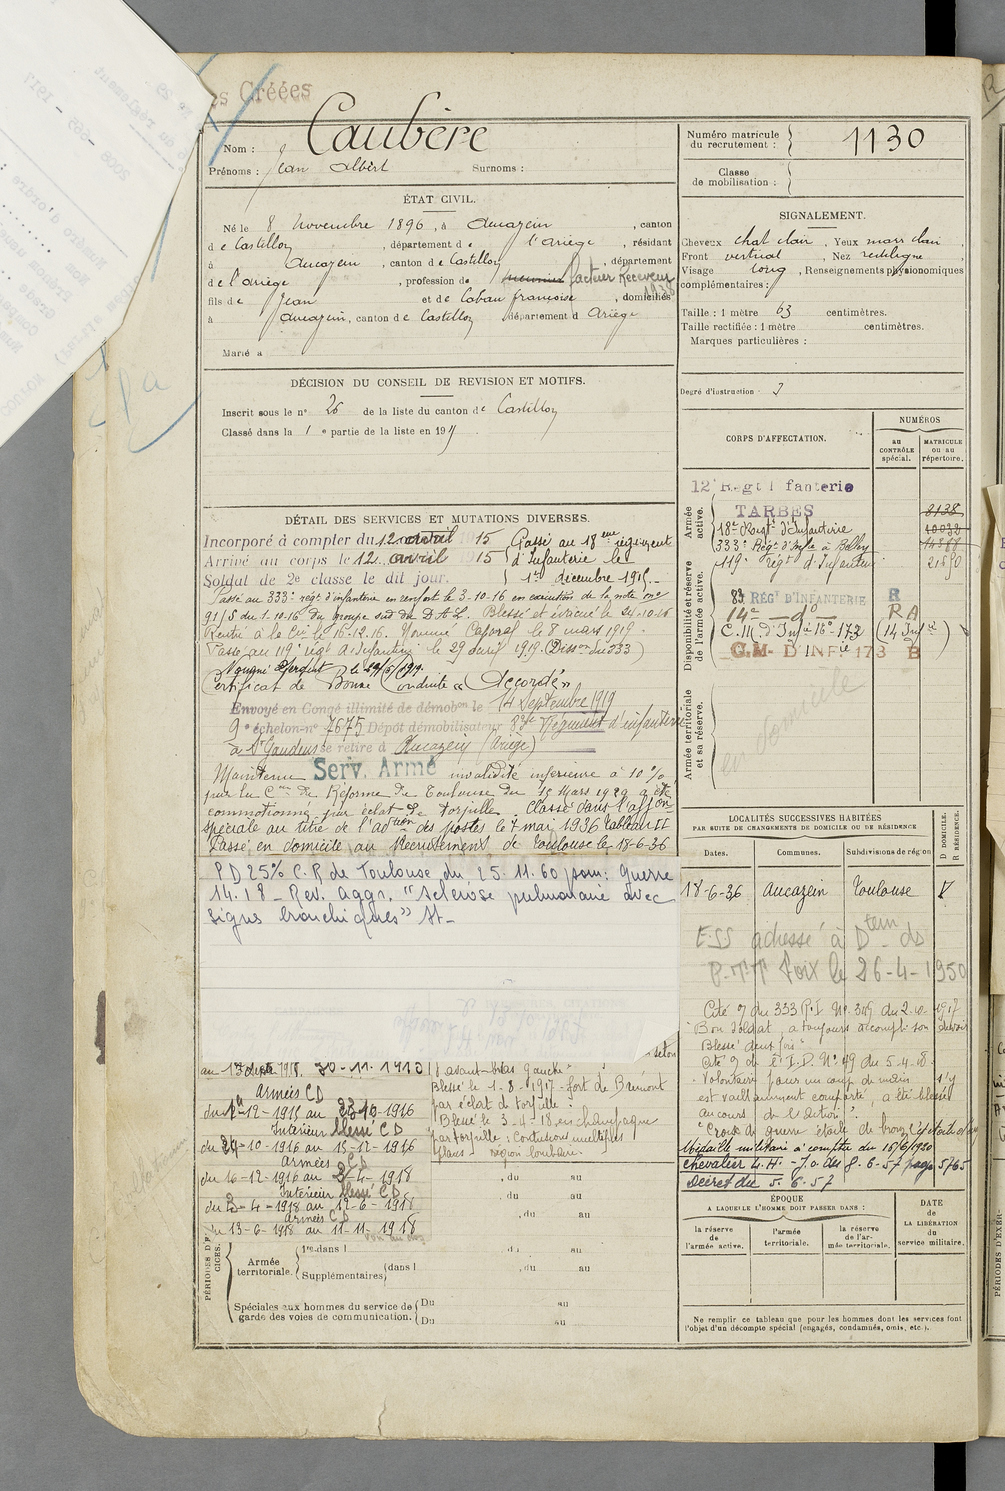 es Créées
Nom : Caubère
Prénoms : Jean Albert Surnoms :
ÉTAT CIVIL.
Né le 8 Novembre 1896, à Aucazein, canton
de Castillon, département de l'Ariège, résidant
à Aucazein, canton de Castillon, département
de l'Ariège, profession de facteur Receveur
fils de Jean et de Caban françoise, domiciliés
à Aucazein, canton de Castillon, département d Ariège
Marié à
DÉCISION DU CONSEIL DE REVISION ET MOTIFS.
Inscrit sous le n° 26 de la liste du canton de Castillon
Classé dans la 1e partie de la liste en 191
DÉTAIL DES SERVICES ET MUTATIONS DIVERSES.
Incorporé à compter du 12 avril 15 Passé au 18me régiment
Arrivé au corps le 12 avril 15 d'Infanterie le
Soldat de 2e classe le dit jour. 1er décembre 1915.-
Passé au 333e régt d'infanterie en renfort le 3.10.16 en exécution de la note
91/5 du 1.10.16 du groupe sud du D.A.L. Blessé et évacué le 24.10.16
Rentré à la Cie le 16.12.16. Nommé Caporal le 8 mars 1919.
Passé au 119e régt d'Infanterie le 29 avril 1919. (Disson du 333)
Nommé Sergent le
Certificat de Bonne Conduite "Accordé"
Envoyé en Congé illimité de démobon le 14 Septembre 1919
9e échelon n° 7675 Dépôt démobilisateur 83e Régiment d'infanterie
à St Gaudens se retire à Aucazein (Ariège)
Maintenu Serv. Armé invalidité inférieure à 10%
par la Con de Réforme de Toulouse du 15 Mars 1929 a été
commotionné par éclat de torpille. Classé dans l'affon
spéciale au titre de l'adtion des postes le 7 mai 1936 Tableau II
Passé en domicile au Recrutement de Toulouse le 18-6-36
PD 25% C.R de Toulouse du 25.11.60 pour: Guerre
14.18 - Rev. aggr. "sclérose pulmonaire avec
signes bronchiques" St-
30-11-1915
avant-bras gauche"
Armées CD
du 1-12-1915 au 23-10-1916
Intérieur blessé CD
du 24-10-1916 au 15-12-1916
Armées CD
du 16-12-1916 au 2-4-1918
Intérieur blessé CD
du 3-4-1918 au 12-6-1918
Armées CD
du 13-6-1918 au 11-11-1918
Blessé le 1-8-1917 - fort de Brimont
par éclat de torpille :
"Blessé le 3-4-18 en champagne
par torpille : Contusions multiples
région lombaire.
, du au
, du au
, du au
PÉRIODES D'EXERCICES.
Armée territoriale. 1re dans l , du au
Supplémentaires dans l , du au
Spéciales aux hommes du service de garde des voies de communication. Du au
Du au
Numéro matricule du recrutement : 1130
Classe de mobilisation :
SIGNALEMENT.
Cheveux chat clair, Yeux marr clair,
Front vertical, Nez rectiligne,
Visage long, Renseignements physionomiques
complémentaires :
Taille : 1 mètre 63 centimètres.
Taille rectifiée : 1 mètre centimètres.
Marques particulières :
Degré d'instruction : 3
CORPS D'AFFECTATION.
NUMÉROS
au CONTRÔLE spécial.
MATRICULE ou au répertoire.
Armée active.
12e Régt Infanterie
TARBES 8138
18e Régt d'Infanterie
333e Régt d'Infie à Belley
119e régt d'Infanterie
Disponibilité et réserve de l'armée active.
83 RÉGt D'INFANTERIE R
14e - do - RA
C.M. d'Infie 16e-173 (14 Infie)
C.M. D'INFie 173 B
Armée territoriale et sa réserve.
en domicile
LOCALITÉS SUCCESSIVES HABITÉES
PAR SUITE DE CHANGEMENTS DE DOMICILE OU DE RÉSIDENCE
Dates. Communes. Subdivisions de région D DOMICILE. R RÉSIDENCE.
18-6-36 Aucazein Toulouse
ESS adressé à Dtem ds
P.T.T Foix le 26-4-1950
Cité O du 333 R.I No 349 du 2.10.1917
"Bon Soldat, a toujours accompli son devoir
Blessé deux fois"
Cité O de l'I.D. No 49 du 5.4.18.
"Volontaire pour un coup de main s'y
est vaillamment comporté, a été blessé
au cours de l'action".
"Croix de guerre étoile de bronze
Médaille militaire à compter du 16/6/1920
Chevalier L.H. - J.O. du 8.6.57 page 5765
Décret du 5.6.57
ÉPOQUE
A LAQUELLE L'HOMME DOIT PASSER DANS :
la réserve de l'armée active.
l'armée territoriale.
la réserve de l'armée territoriale.
DATE de LA LIBÉRATION du service militaire.
Ne remplir ce tableau que pour les hommes dont les services font
l'objet d'un décompte spécial (engagés, condamnés, omis, etc.).